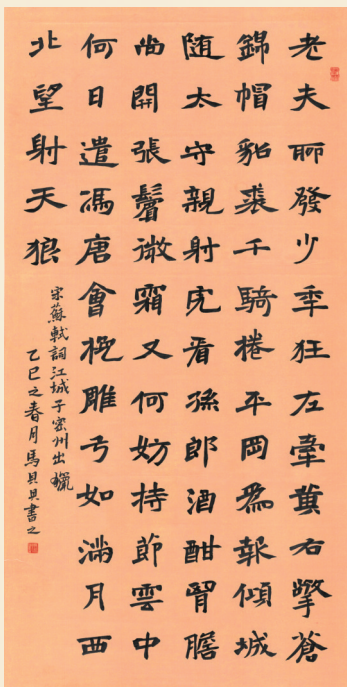 老夫聊發少秊狂左牽黃右擎蒼
錦帽貂裘千騎捲平岡為報傾城
随太守親射虎看孫郎酒酣胷膽
尚開張鬢微霜又何妨持節雲中
何日遣馮唐會挽雕弓如滿月西
北望射天狼
宋蘇軾詞江城子密州出獵
乙巳之春月馬貝貝書之